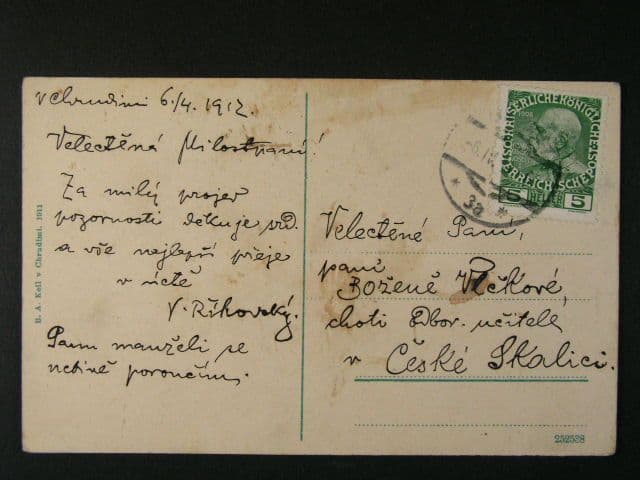 v Chrudimi 6/4 1912.
Velectěná Milostpaní!
Za milý projev
pozornosti děkuje srd.
a vše nejlepší přeje
v úctě
V. Říhovský.
Panu manželi se
uctivě poroučím.
B. A. Keil v Chrudimi. 1911
KAISERLICHE KÖNIGLICHE
ÖSTERREICHISCHE
1908
5 5
3a
Velectěné Paní,
paní
Boženě Vlčkové,
choti odbor. učitele
v České Skalici.
252528